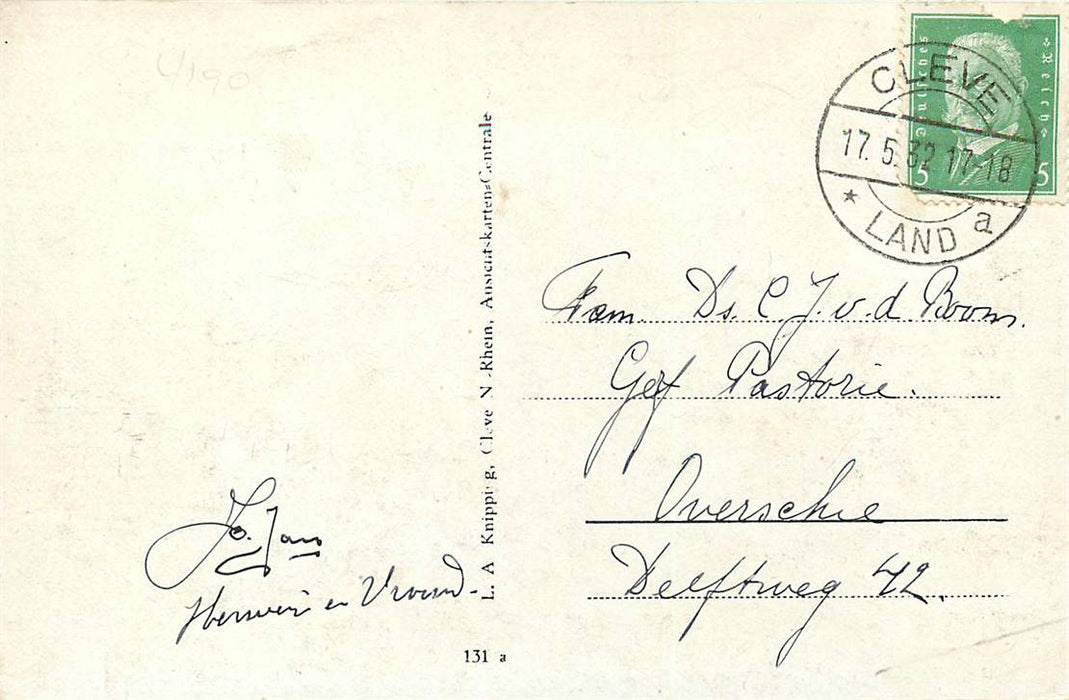 4/190
Deutsches Reich
5 5
CLEVE
17.5.32 17-18
* LAND a
L. A. Knipping, Cleve N.-Rhein, Ansichtskarten-Centrale
Fam. Ds. C. J. v. d. Boom.
Geref Pastorie.
Overschie
Delftweg 42.
Jo. Jans
en
131 a